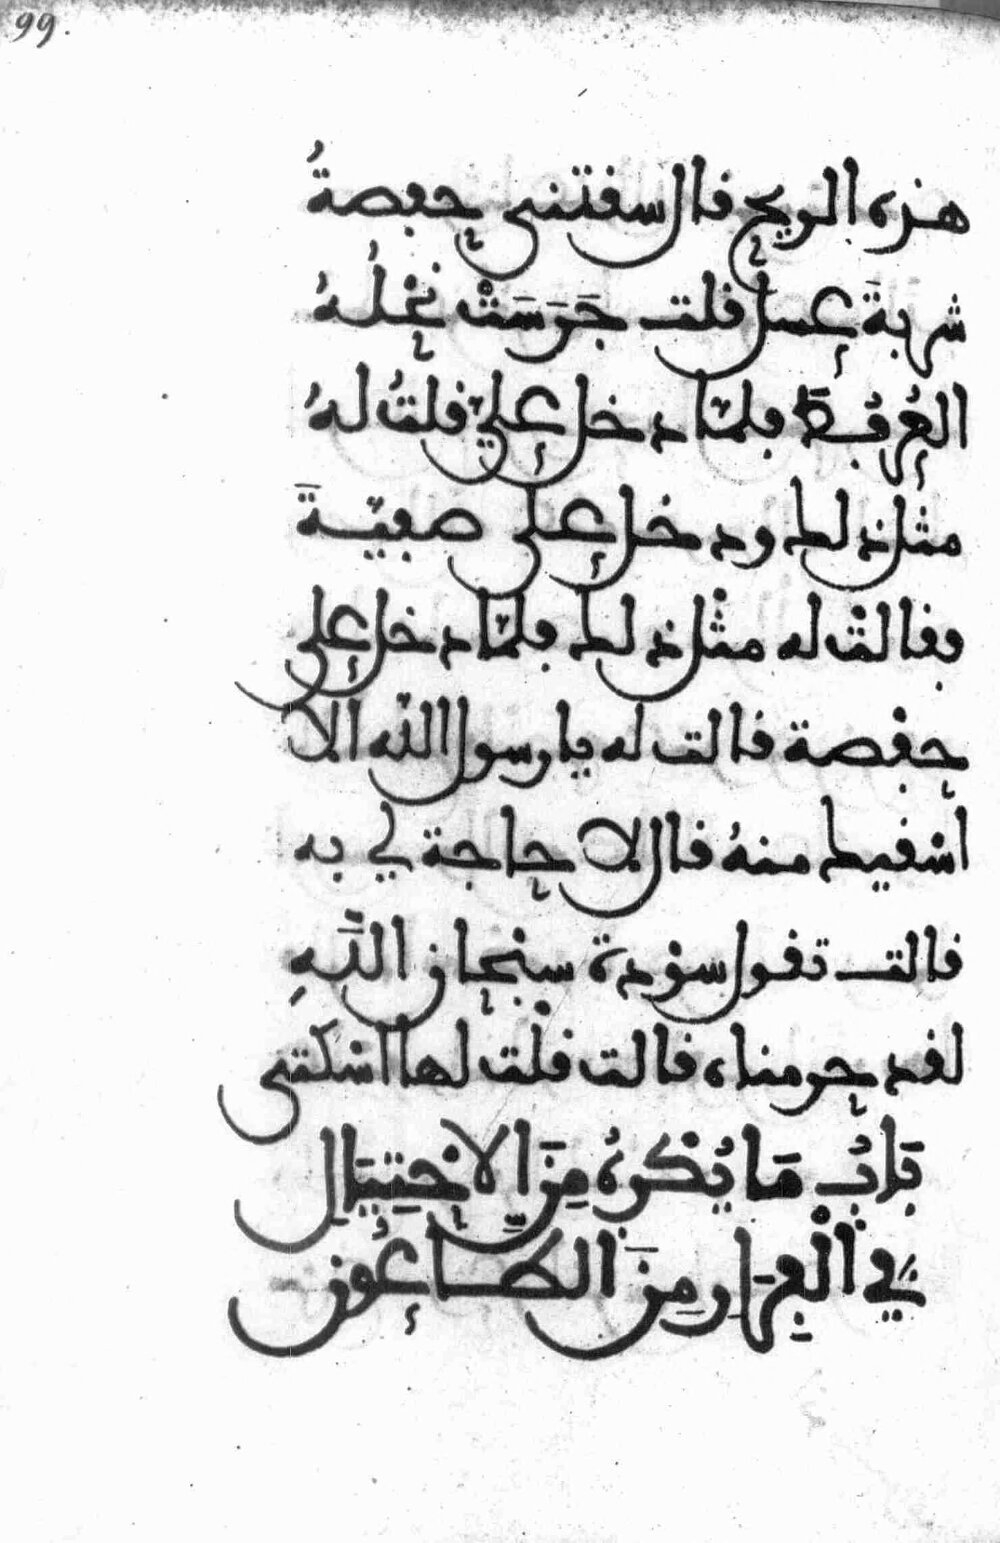 99.
هذه الريح قال سقتنى حفصةُ
شربةَ عسل قلت جَرَسَتْ نَحْلُهُ
العُرفُطَ فلمّا دخل علىّ قلتُ لهُ
مثل ذلك ودخل على صفيّةَ
فقالتْ له مثْل ذلك فلمّا دخل على
حفْصة قالت له يا رسول اللّه الا
اسْقيك منهُ قال لا حاجة لي به
قالت تقول سوْدة سبْحان اللَّهِ
لقد حرمناه قالت قلْت لها اسْكتى
بَابُ مَا يُكْرهُ مِنَ الِاحْتِيَالِ
فِي الْفِرَارِ مِنَ الطَّاعُونِ